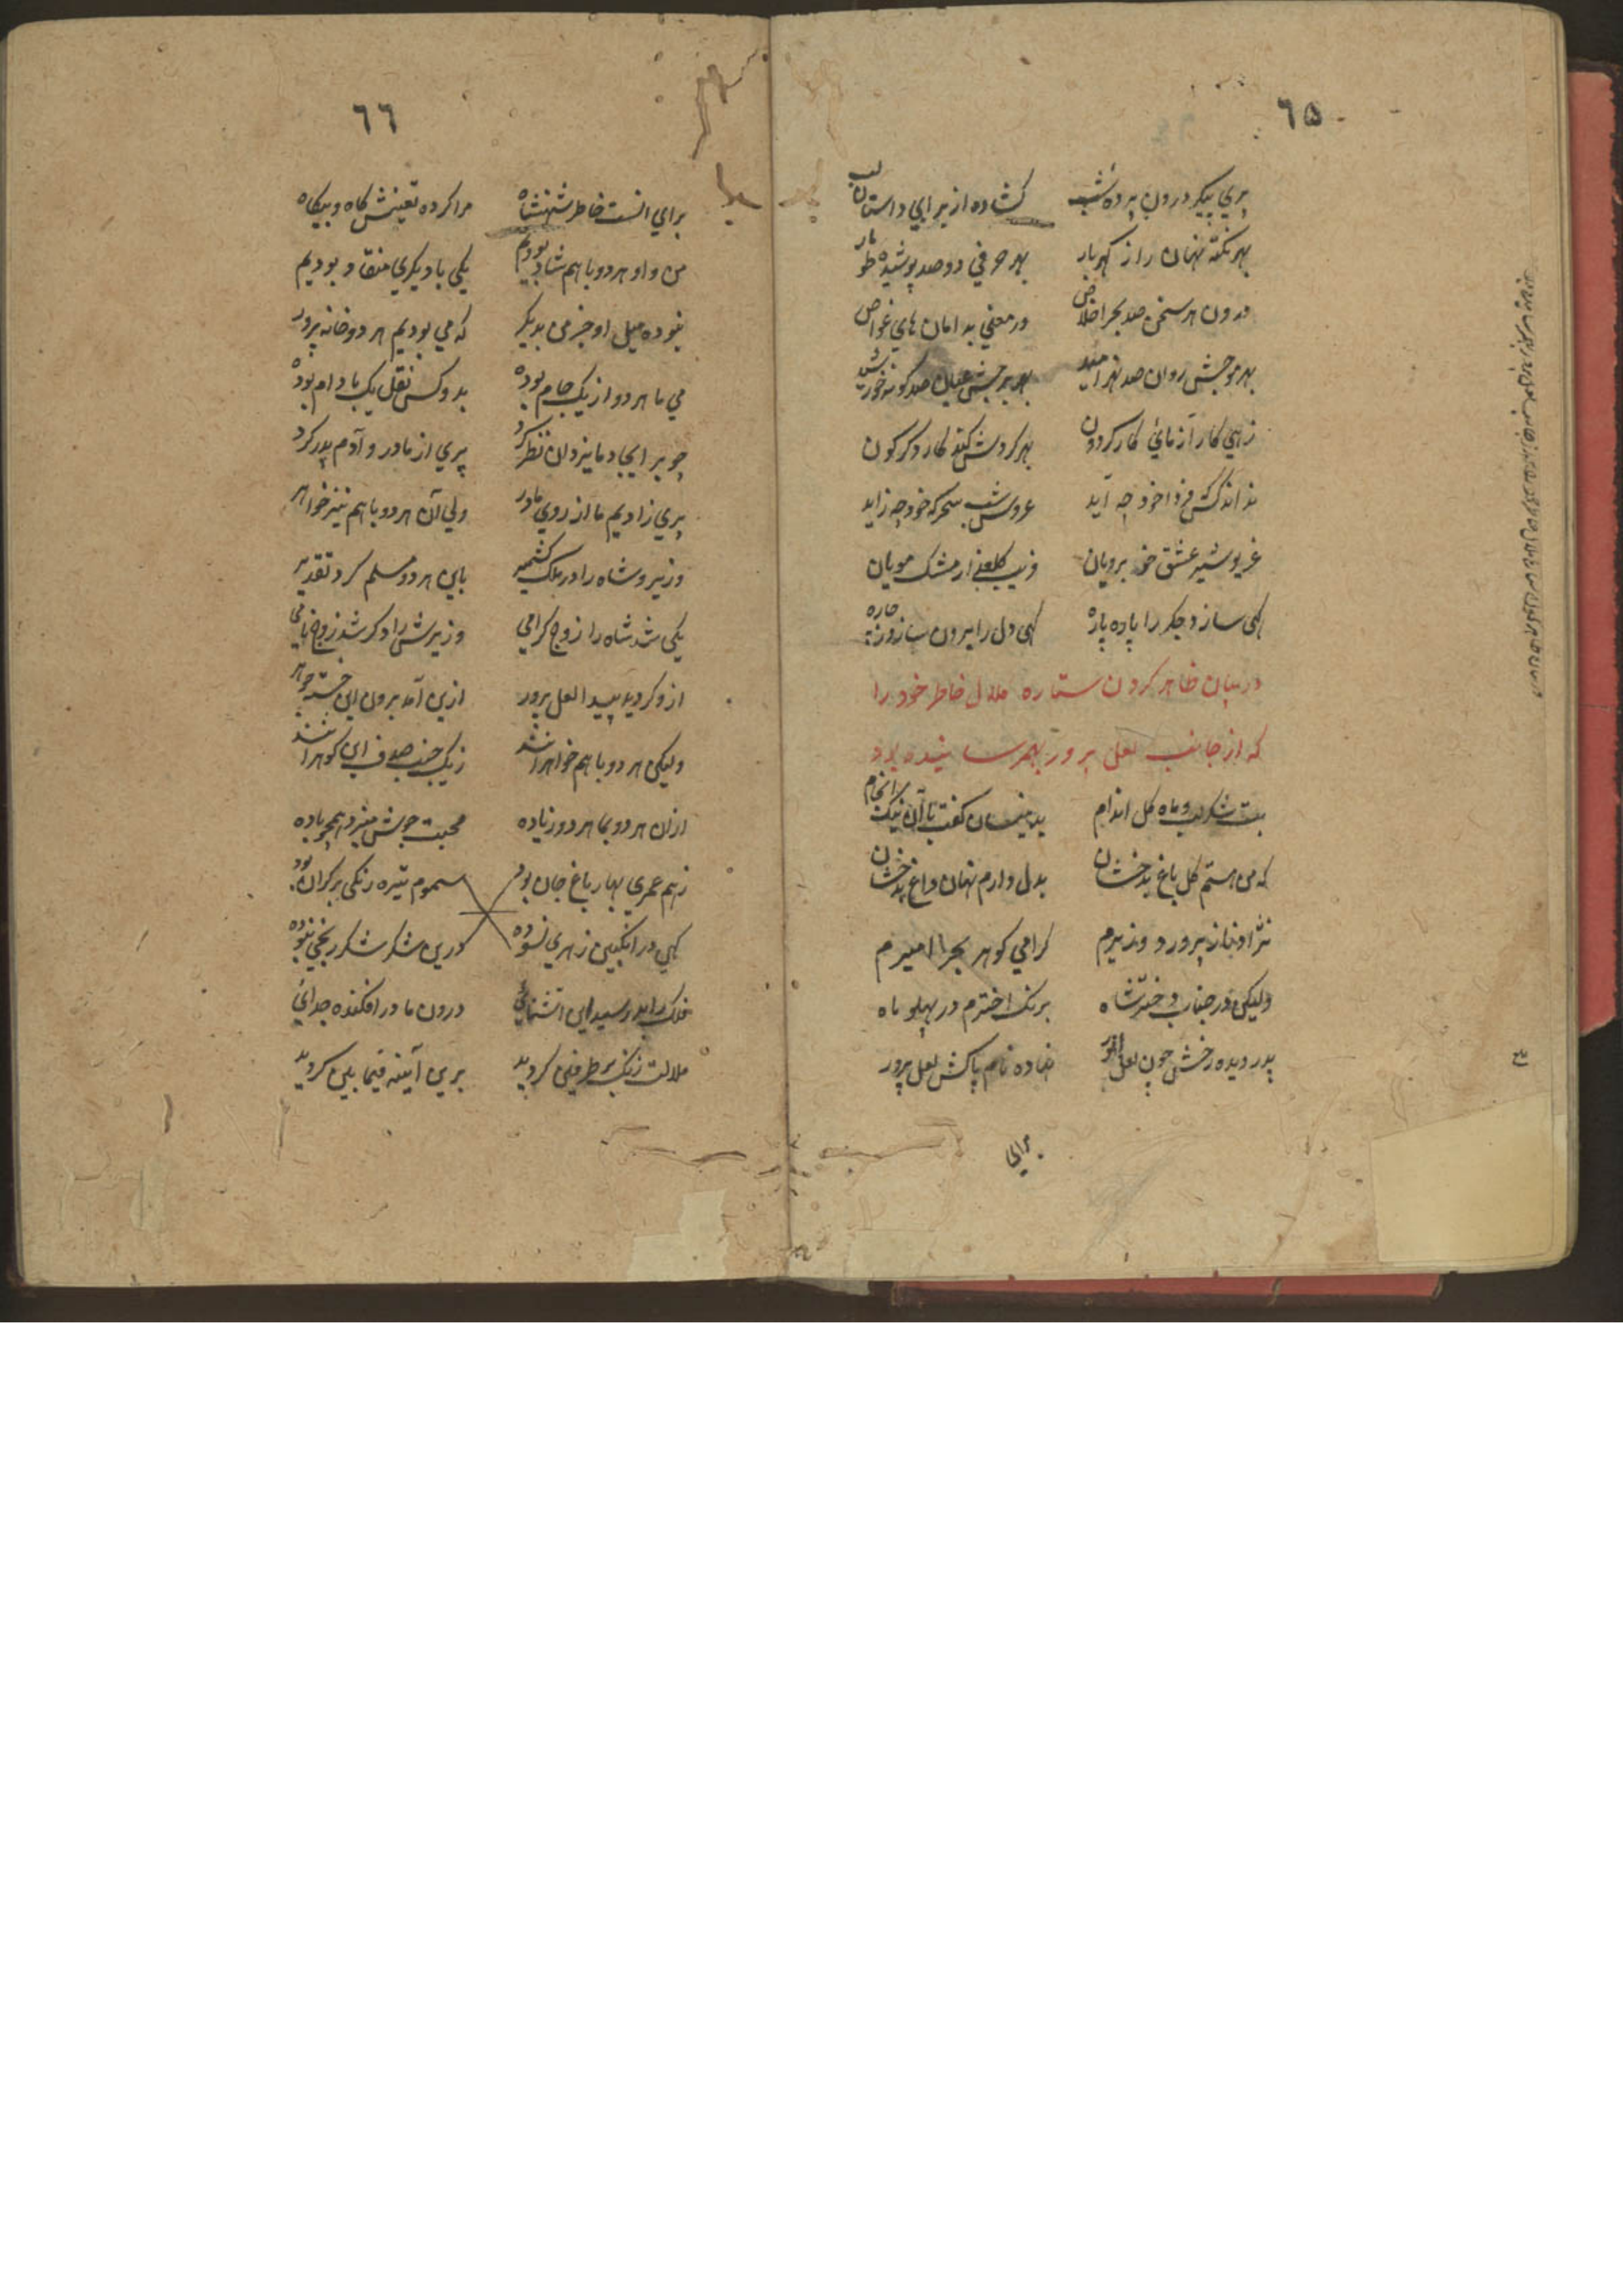 ٦٥
پري پیکر درون پرده شب کشاده از پر ایي داستان لب
بهر نکته نهان راز کهربار بهر حرفي دو صد پوشیده طومار
درون هر سخن صد بحر اخلاص در معني بدامان هاي غواص
بهر موجش روان صد نهر امید بهر برجش عیان صد کونه خورشید
زهي کار آزمائي کار کردون بهر کردش کند کار دکرکون
نداند کس که فردا خود چه آید عروس شب سحرکه خود چه زاید
غریو شیر عشق خوبرویان فریب کلعذار مشک مویان
کهي سازد جکر را پاره پاره کهي دل را برون سازد ز خاره
در بیان ظاهر کردن ستاره ملال خاطر خود را
که از جانب لعل پرور بهمرسانیده بود
بت شکر لب و ماه کل اندام بدینسان کفت با آن نیک انجام
که من هستم کل باغ بدخشان بدل دارم نهان داغ بدخشان
نژاد ناز پرورد وزیرم کرامي کوهر بحر امیرم
ولیکن در جناب دختر شاه برنک اخترم در پهلو ماه
پدر دیده رخش چون لعل انور نهاده نام پاکش لعل پرور
براي
٦٦
براي انست خاطر شهنشاه مرا کرده تعینش کاه و بیکاه
من و او هر دو با هم شاد بودیم یکي با دیکري منقاد بودیم
نبوده میل او جز من بدیکر که مي بودیم هر دو خانه پرور
مي ما هر دو از یک جام بوده بدو کس نقل یک بادام بوده
چو بر ایجاد ما یزدان نظر کرد پري از مادر و آدم پدر کرد
پري زادیم ما از روي مادر ولي آن هر دو با هم نیز خواهر
وزیر و شاه را در ملک کشمیر باین هر دو مسلم کرد تقدیر
یکي شد شاه را زوج کرامي وزیرش را دکر شد زوج نامي
ازو کردید پیدا لعل پرور ازین آمد برون این خسته جوهر
ولیکن هر دو با هم خواهرانند ز یک جنب صدف این کوهرانند
ازان هر دو بما هر دو زیاده محبت جوش میزد همچو باده
ز هم عمري بهار باغ جان بود سموم تیره رنکي بر کران بود
کهي در انکبین زهري نسوده درین شکر شکر رنجي نبوده
فلک را بد رسید این آشنائي درون ما در افکنده جدائي
ملالت زنک بر طرفین کردید برین آینه فیما بین کردید